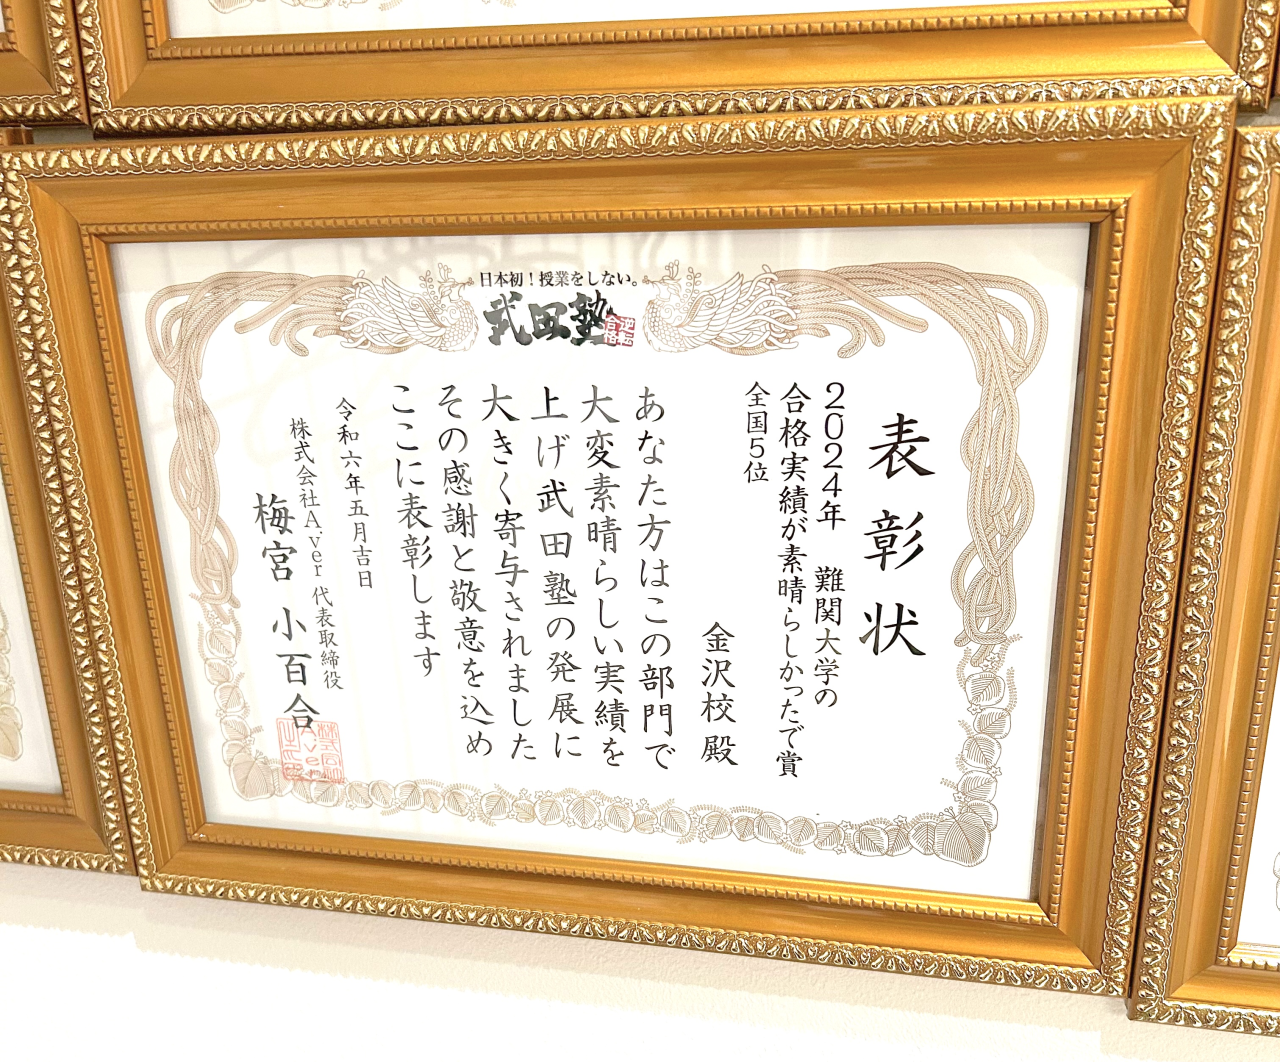 日本初！授業をしない。
武田塾
逆転
合格
表彰状
2024年 難関大学の
合格実績が素晴らしかったで賞
全国5位
金沢校殿
あなた方はこの部門で
大変素晴らしい実績を
上げ武田塾の発展に
大きく寄与されました
その感謝と敬意を込め
ここに表彰します
令和六年五月吉日
株式会社A.ver 代表取締役
梅宮 小百合